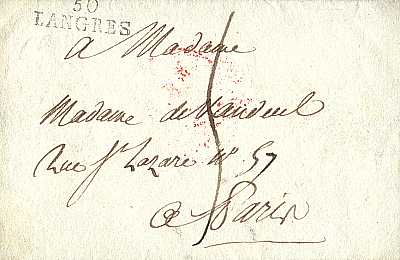 50
LANGRES
a Madame
Madame de Vandeul
Rue St Lazare n° 57
a Paris